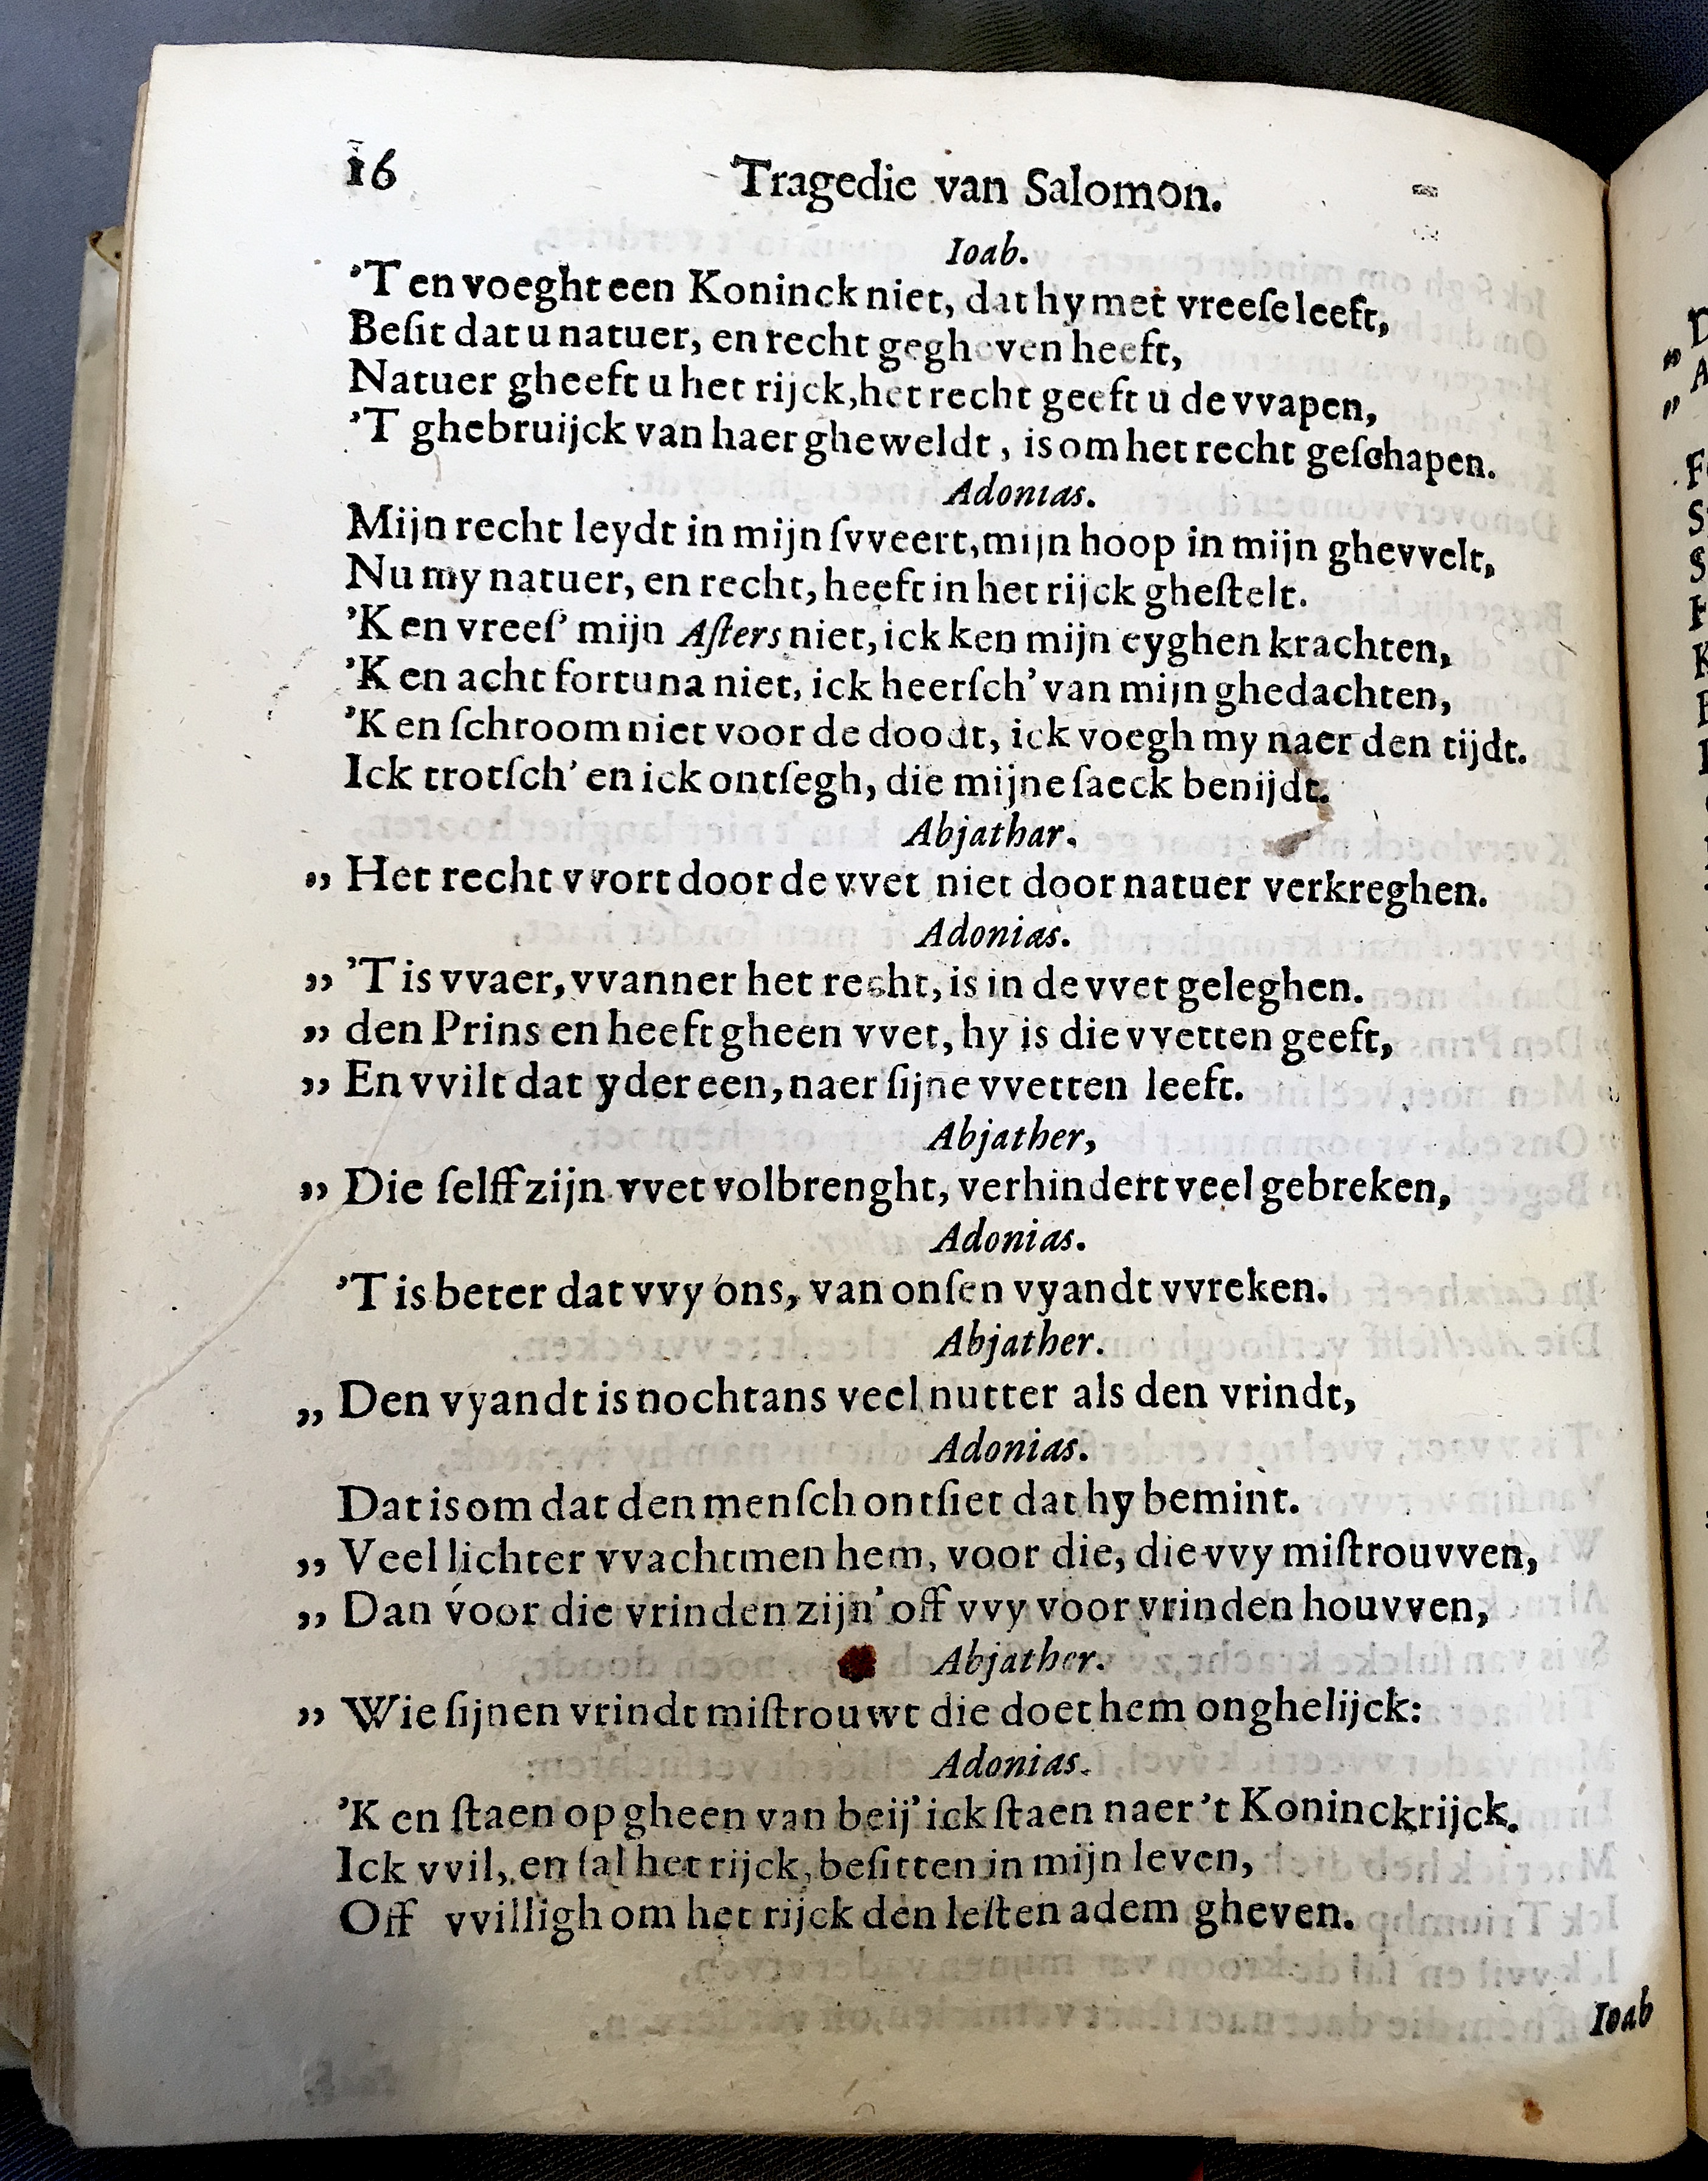 16 Tragedie van Salomon.
Ioab.
'T en voeght een Koninck niet, dat hy met vreeſe leeft,
Beſit dat u natuer, en recht gegheven heeft,
Natuer gheeft u het rijck, het recht geeft u de vvapen,
'T ghebruijck van haer gheweldt, is om het recht geſchapen.
Adonias.
Mijn recht leydt in mijn ſvveert, mijn hoop in mijn ghevvelt,
Nu my natuer, en recht, heeft in het rijck gheſtelt.
'K en vreeſ' mijn Aſters niet, ick ken mijn eyghen krachten,
'K en acht fortuna niet, ick heerſch' van mijn ghedachten,
'K en ſchroom niet voor de doodt, ick voegh my naer den tijdt.
Ick trotſch' en ick ontſegh, die mijne ſaeck benijdt.
Abjathar.
„ Het recht vvort door de vvet niet door natuer verkreghen.
Adonias.
„ 'T is vvaer, vvanner het recht, is in de vvet geleghen.
„ den Prins en heeft gheen vvet, hy is die vvetten geeft,
„ En vvilt dat yder een, naer ſijne vvetten leeft.
Abjather,
„ Die ſelff zijn vvet volbrenght, verhindert veel gebreken,
Adonias.
'T is beter dat vvy ons, van onſen vyandt vvreken.
Abjather.
„ Den vyandt is nochtans veel nutter als den vrindt,
Adonias.
Dat is om dat den menſch ontſiet dat hy bemint.
„ Veel lichter vvacht men hem, voor die, die vvy miſtrouvven,
„ Dan voor die vrinden zijn' off vvy voor vrinden houvven,
Abjather.
„ Wie ſijnen vrindt miſtrouwt die doet hem onghelijck:
Adonias.
'K en ſtaen op gheen van beij' ick ſtaen naer 't Koninckrijck.
Ick vvil, en ſal het rijck, beſitten in mijn leven,
Off vvilligh om het rijck den leſten adem gheven.
Ioab